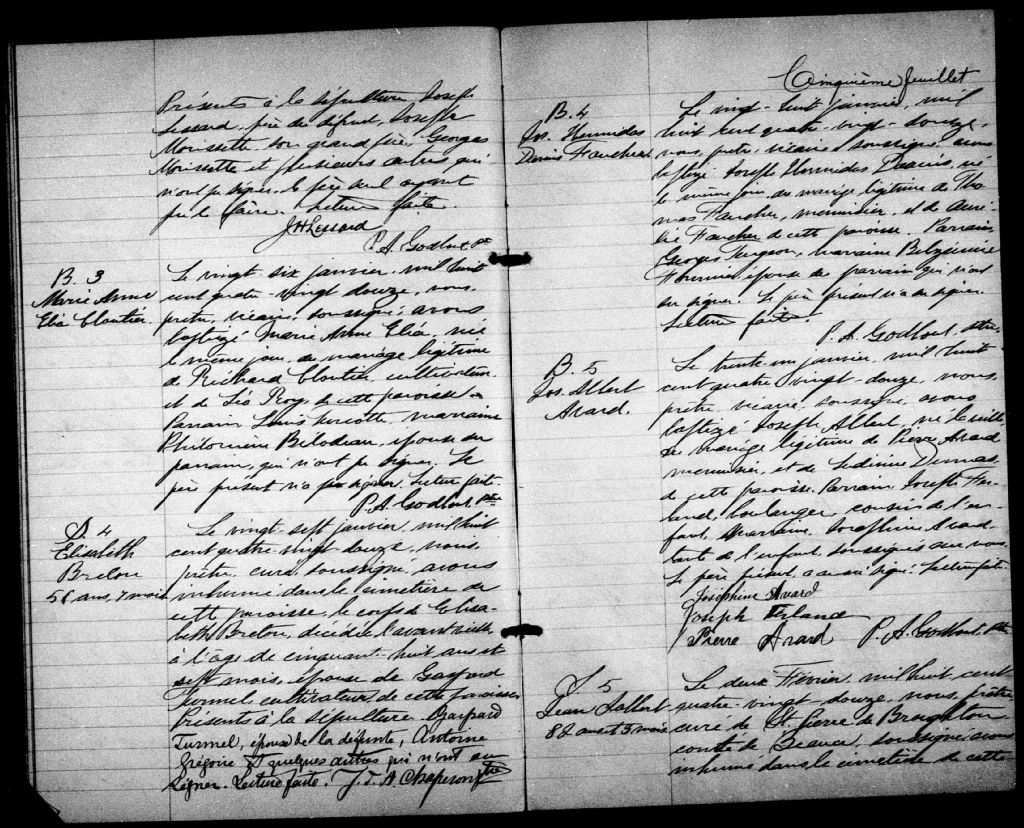 Présents à la sépulture Joseph
Lessard, père du défunt, Joseph
Morissette son grand père, Georges
Morissette et plusieurs autres qui
n'ont pu signer, le père seul ayant
pu le faire. Lecture faite.
J H Lessard
P. A. Godbout Ptre
B. 3
Marie Anne
Elia Cloutier.
Le vingt six janvier, mil huit
cent quatre-vingt douze, nous
prêtre, vicaire, soussigné, avons
baptisé Marie Anne Elia, née
le même jour, du mariage légitime
de Richard Cloutier cultivateur
et de Léa Roy, de cette paroisse.
Parrain Louis marraine
Philomène Bilodeau, épouse du
parrain, qui n'ont pu signer. Le
père présent n'a pu signer. Lecture faite.
P. A. Godbout Ptre
S. 4
Elisabeth
Breton
58 ans, 7 mois
Le vingt-sept janvier, mil huit
cent quatre vingt douze, nous
prêtre, curé, soussigné, avons
inhumé dans le cimetière de
cette paroisse, le corps de Elisa-
beth Breton, décédée l'avant veille
à l'âge de cinquante-huit ans et
sept mois, épouse de Gaspard
Turmel cultivateur de cette paroisse.
Présents à la sépulture Gaspard
Turmel, époux de la défunte, Antoine
Grégoire & quelques autres qui n'ont su
signer. Lecture faite. J. T. A. Chaperon ptre
Cinquième feuillet
B. 4
Jos. Hermidas
Demis Faucher
Le vingt-huit janvier, mil
huit cent quatre-vingt-douze,
nous, prêtre, vicaire, soussigné avons
baptisé Joseph Hermidas né
le même jour, du mariage légitime de Tho-
mas Faucher, menuisier, et de Auré-
lie Faucher de cette paroisse. Parrain
Georges marraine
Fournier épouse du parrain qui n'ont
su signer. Le père présent n'a su signer.
Lecture faite.
P. A. Godbout, ptre
B. 5
Jos. Albert
Avard.
Le trente-un janvier, mil huit-
cent quatre vingt-douze, nous
prêtre, vicaire, soussigné, avons
baptisé Joseph Albert, né la veille
du mariage légitime de Pierre Avard
menuisier, et de
de cette paroisse. Parrain Joseph Fer-
land, boulanger, cousin de l'en-
fant. Marraine Joséphine Avard
tante de l'enfant, soussignés avec nous.
Le père présent a aussi signé. Lecture faite
Joséphine Avard
Joseph Ferland
Pierre Avard P. A. Godbout. Ptre
S. 5
Jean Jalbert
82 ans et 3 mois
Le deux Février, mil huit cent
quatre-vingt-douze, nous, prêtre,
curé de St. Pierre de Broughton
comté de Beauce, soussigné, avons
inhumé dans le cimetière de cette